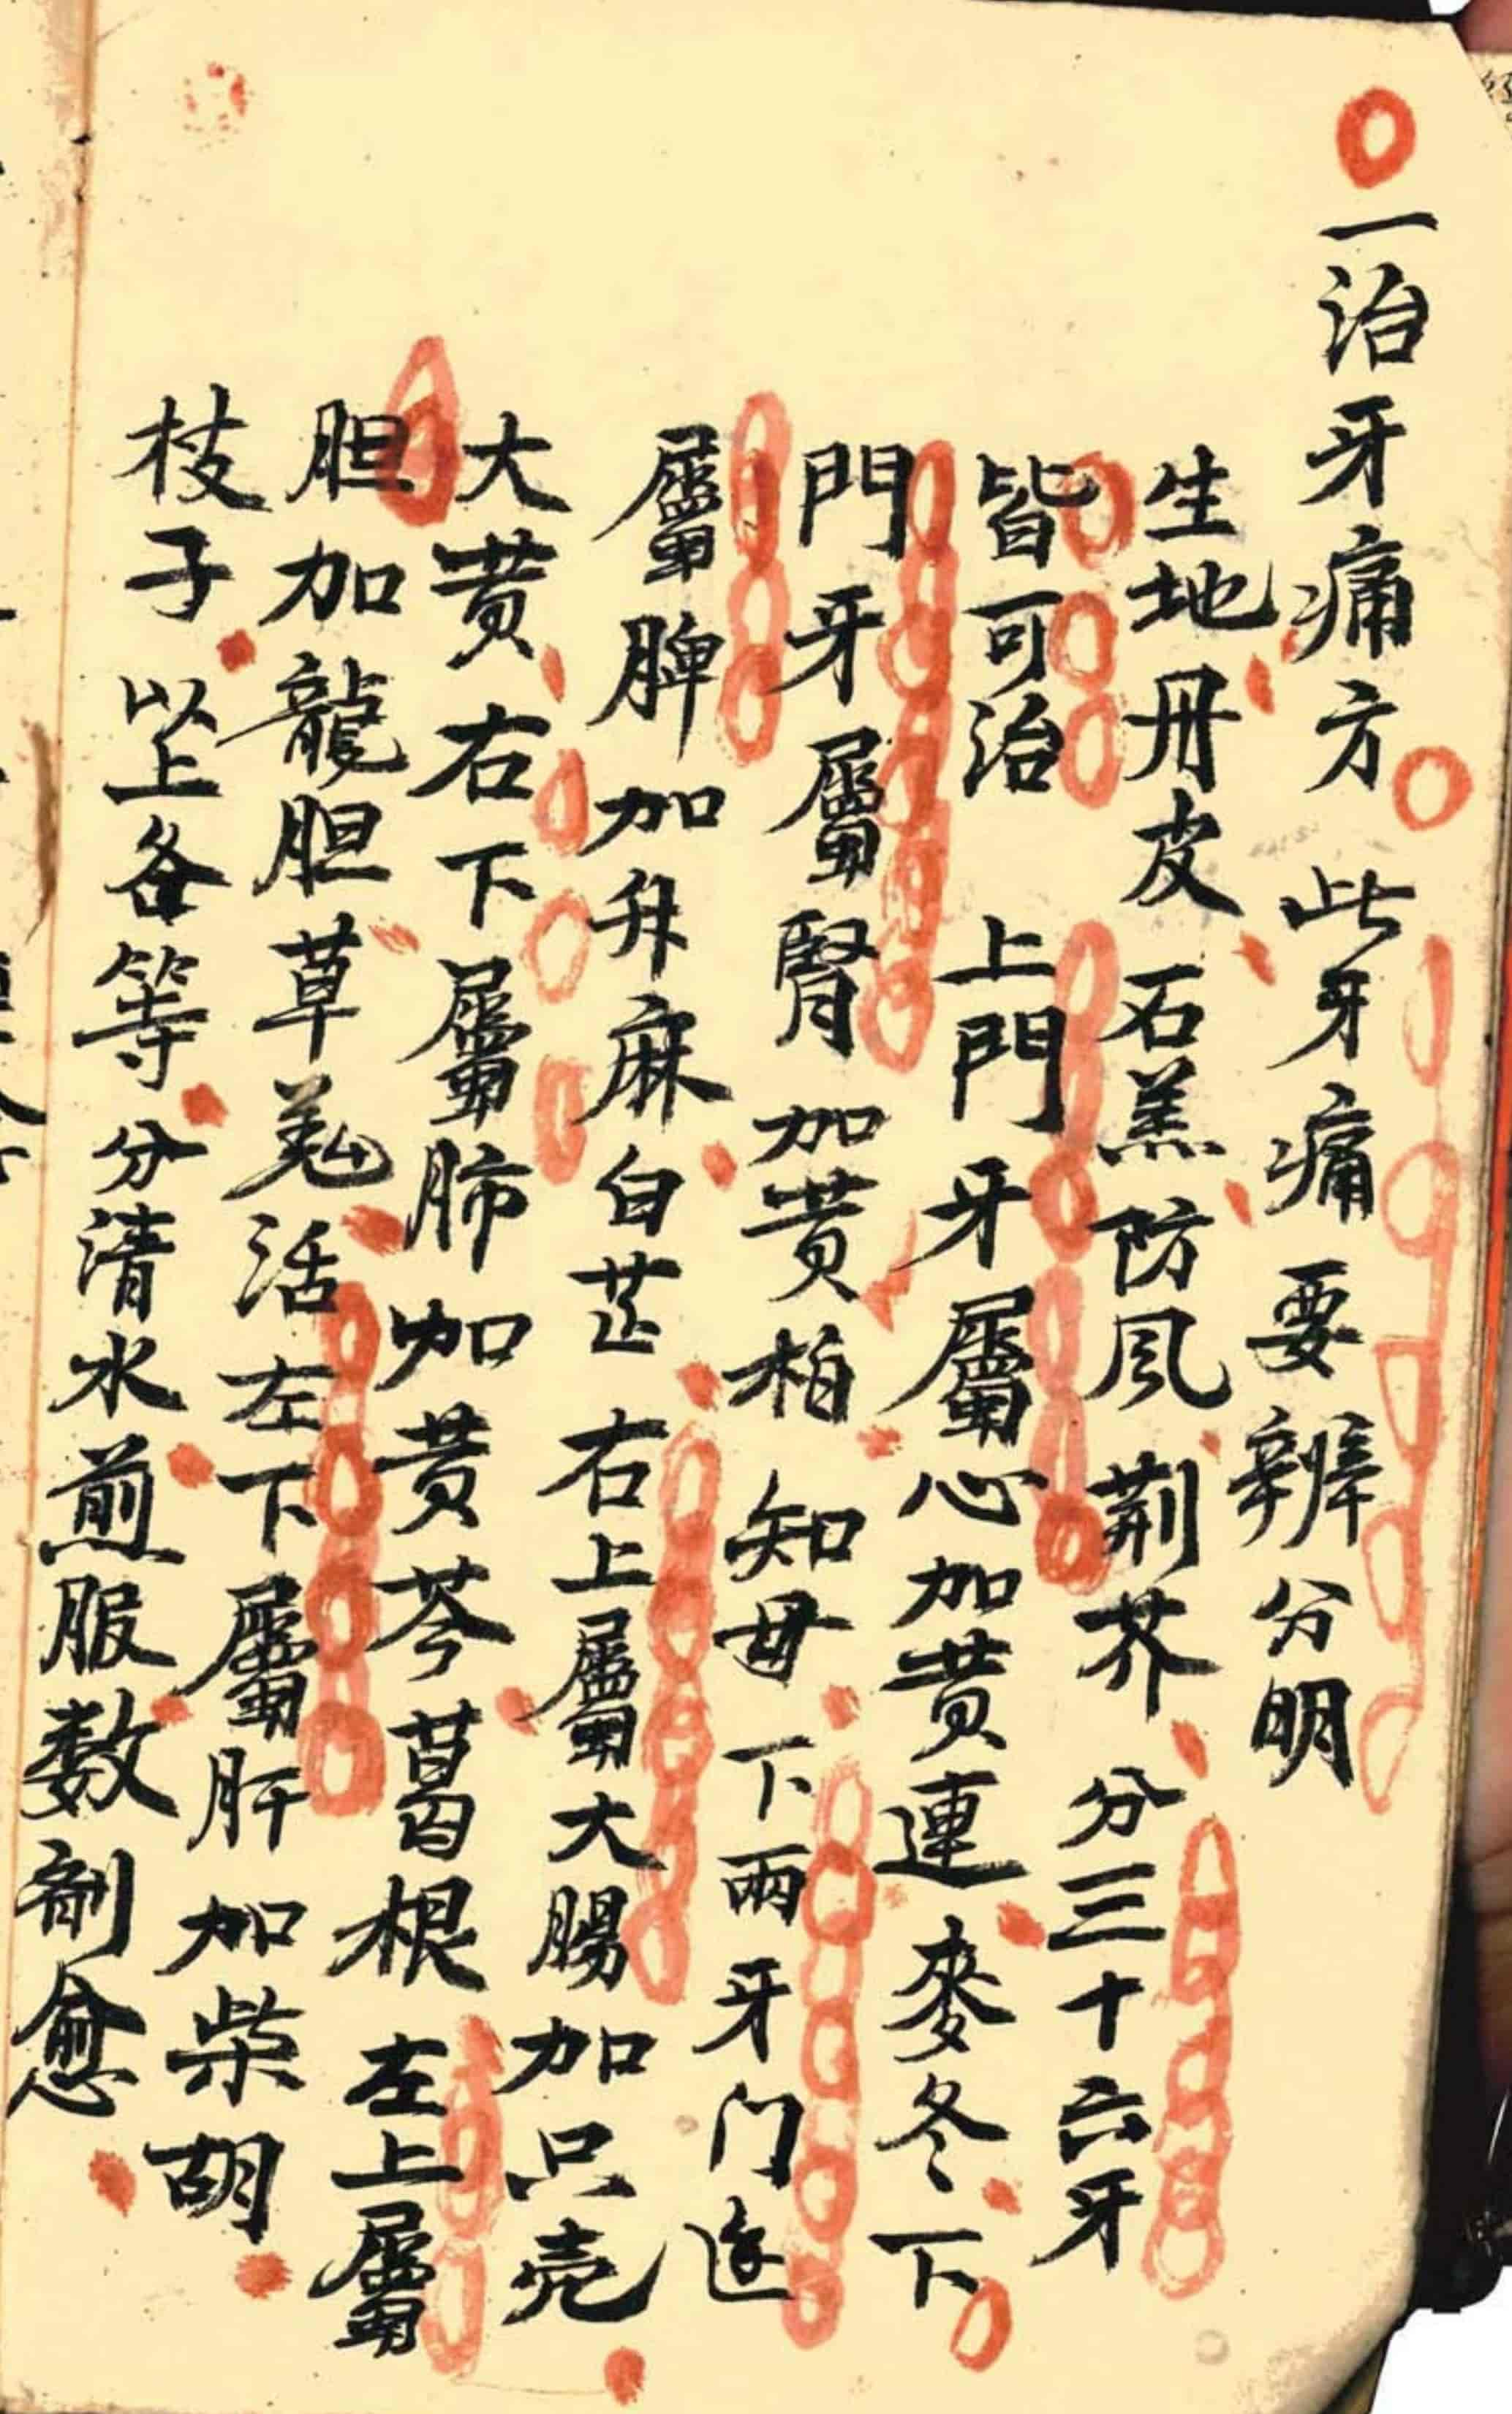 一治牙痛方 此牙痛要辨分明
生地丹皮石羔防風荊芥 分三十六牙
皆可治 上門牙屬心加黃連麥冬 下
門牙屬腎加黃柏知母 下兩牙门迯
屬脾加升麻白芷 右上屬大腸加只壳
大黄 右下屬肺加黄芩葛根 左上屬
胆加龍胆草羗活 左下屬肝加柴胡
枝子 以上各等分清水煎服数剤愈